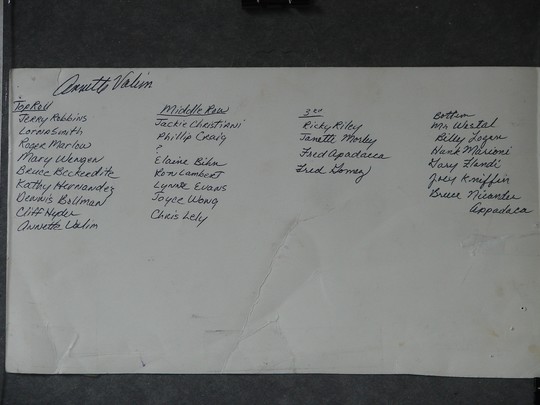 Annette Valim
Top Row
Terry Robbins
Lorna Smith
Roger Marlow
Mary Wengen
Bruce Beckedite
Kathy Hernandez
Dennis Bollman
Cliff Hyder
Annette Valim
Middle Row
Jackie Christiani
Phillip Craig
?
Elaine Bihn
Ron Lambert
Lynne Evans
Joyce Wong
Chris Lely
3rd
Ricky Riley
Janette Morley
Fred Apadaca
Fred Gomez
Bottom
Mr Westal
Billy Logan
Hank Marioni
Gary
Joey Kniffin
Bruce Nicander
Appadaca